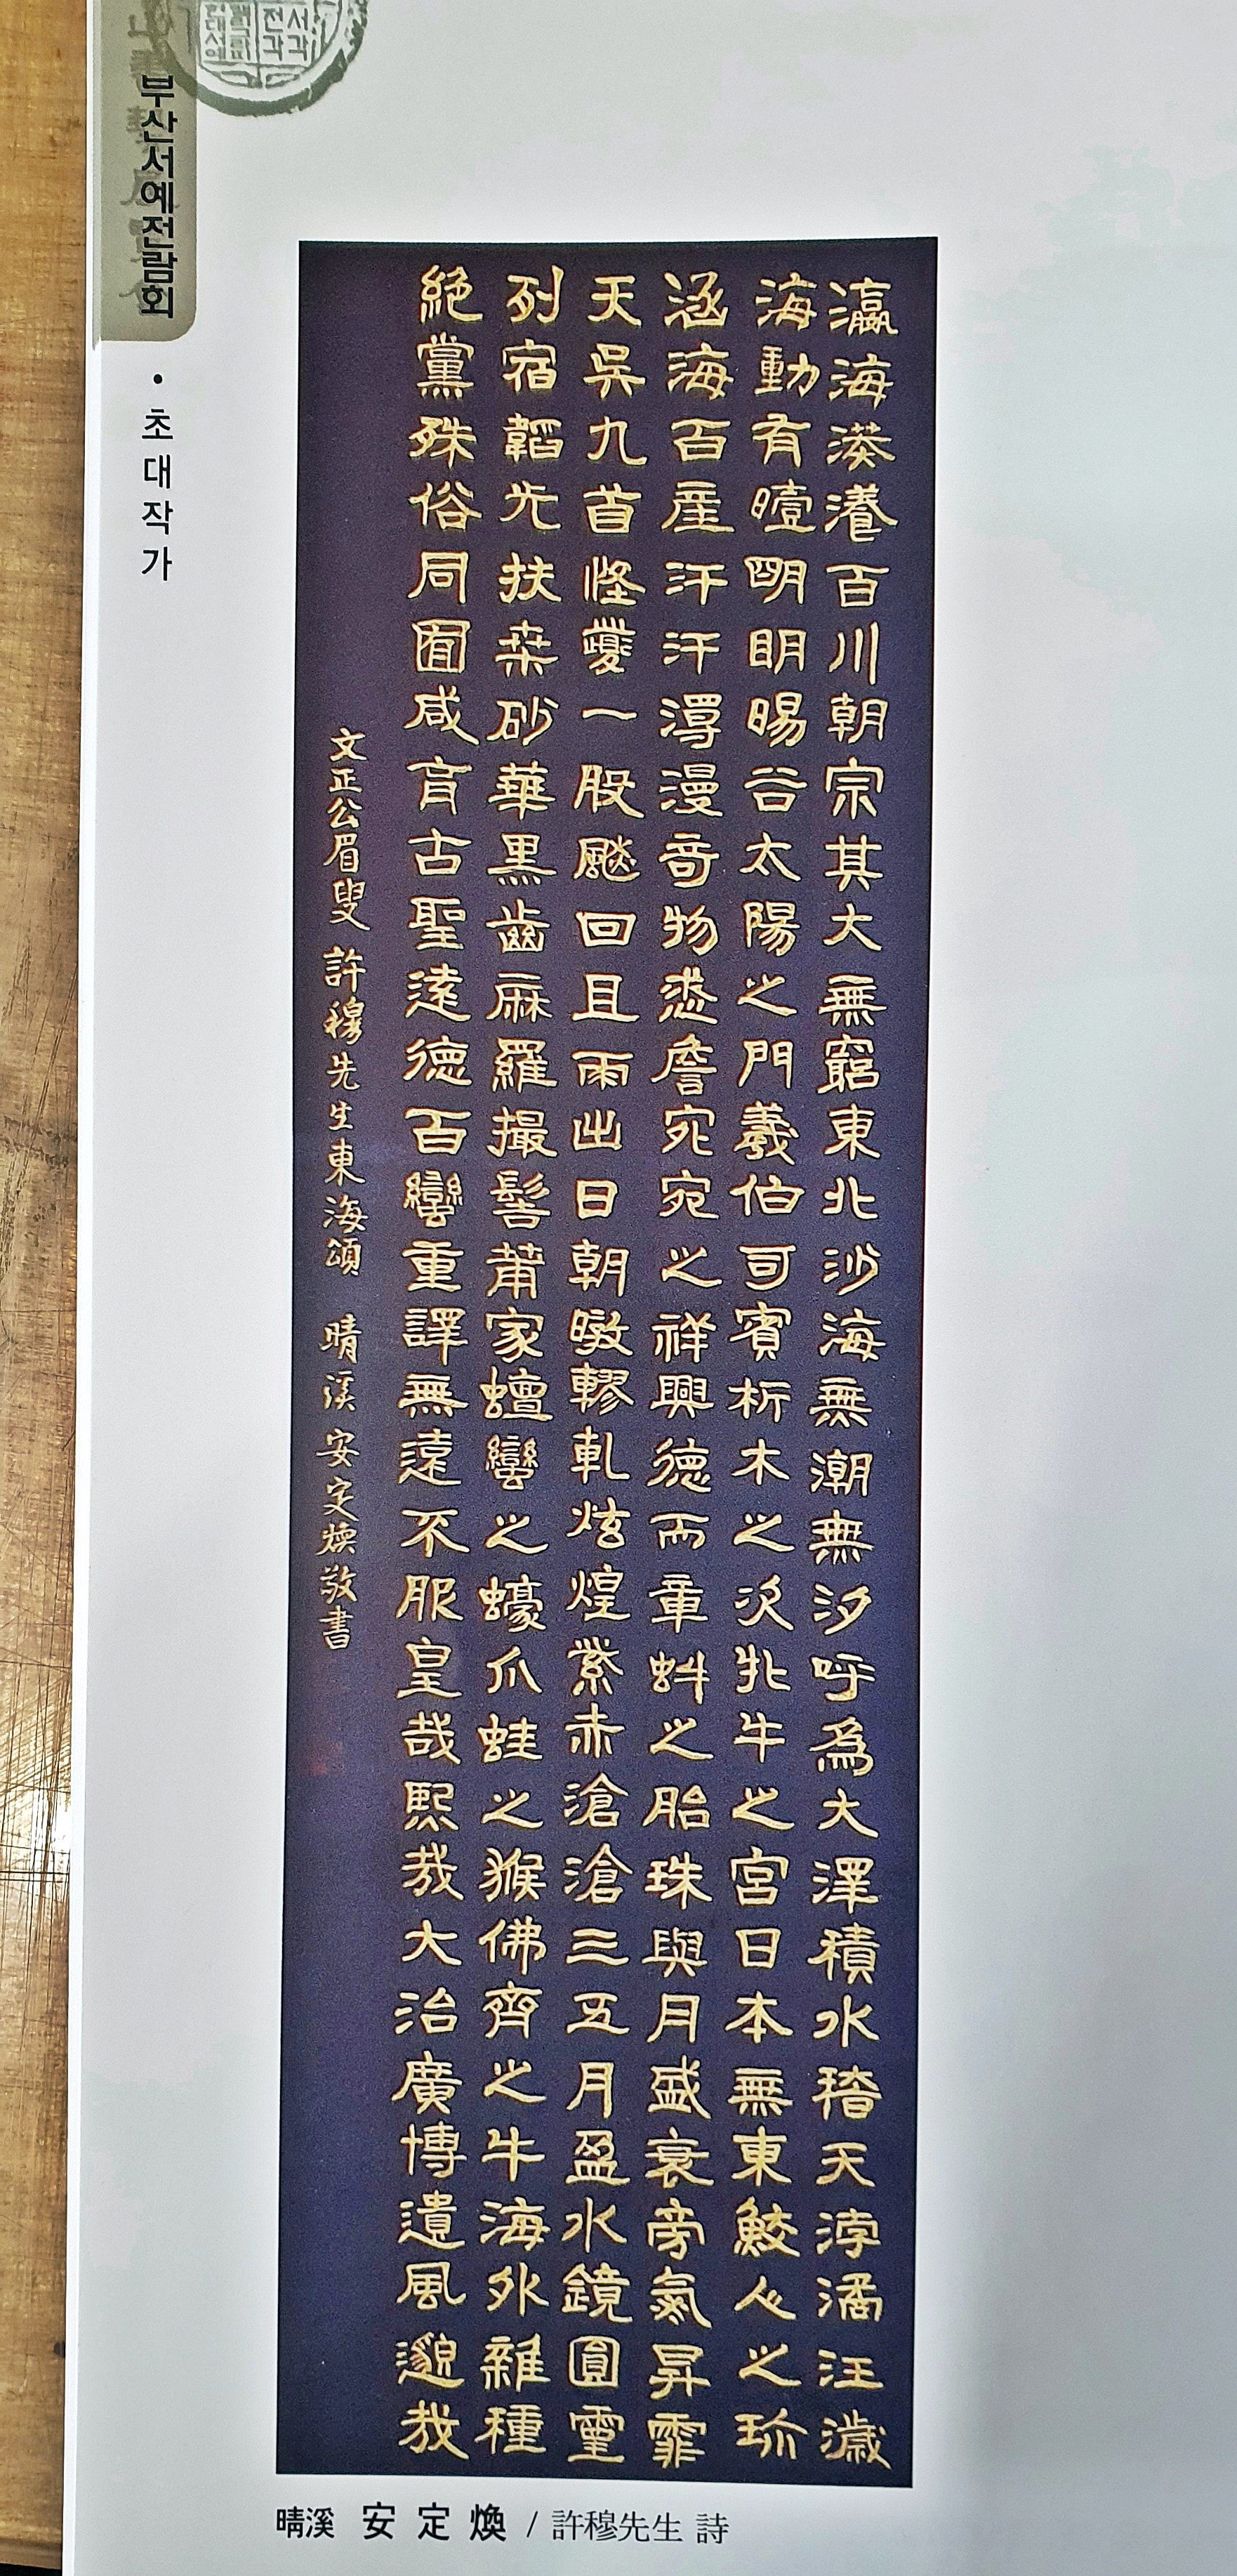 부산서예전람회
• 초대작가
서각
전각
瀛海漭瀁百川朝宗其大無窮東北沙海無潮無汐呼為大澤積水稽天浡潏汪濊
海動有曀明明暘谷太陽之門羲伯司賓析木之次牝牛之宮日本無東鮫人之珍
涵海百産汗汗漫奇物宛宛之祥興德而章蚌之胎珠與月盛衰旁氣昇霏
天吳九首怪夔一股颷回且雨出日朝暾轇軋炫煌紫赤滄滄三五月盈水鏡圓靈
列宿韜光扶桑砂華黑齒麻羅撮髻莆家蟺蠻之蠔爪蛙之猴佛齊之牛海外雜種
絶黨殊俗同囿咸育古聖遠德百蠻重譯無遠不服皇哉熙哉大治廣博遺風邈哉
文正公眉叟許穆先生東海頌 晴溪安定煥敬書
晴溪 安定煥 / 許穆先生 詩